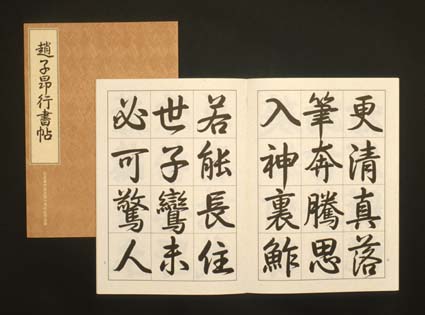 趙子昂行書帖
更清真落
筆奔騰思
入神裏鮓
若能長住
世子鸞未
必可驚人